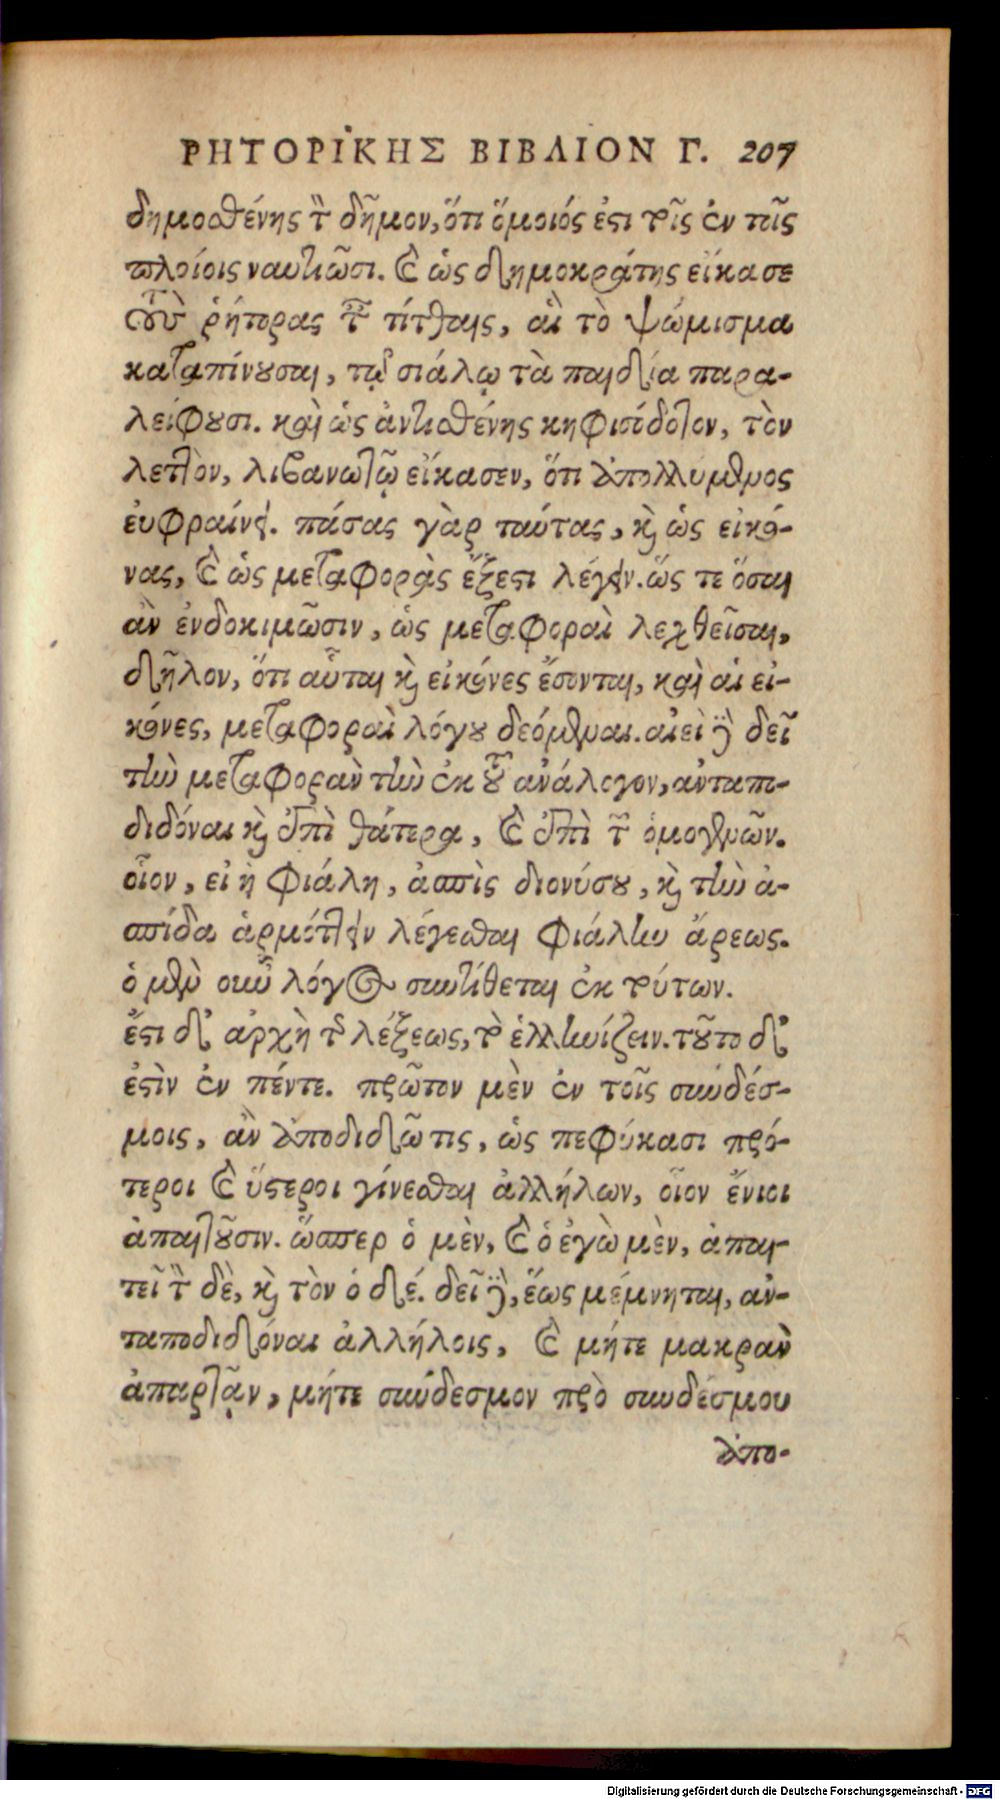 ΡΗΤΟΡΙΚΗΣ ΒΙΒΛΙΟΝ Γ. 207
δημοσθένης τὸν δῆμον, ὅτι ὅμοιός ἐστι τοῖς ἐν τοῖς
πλοίοις ναυτιῶσι. καὶ ὡς δημοκράτης εἴκασε
τοὺς ῥήτορας ταῖς τίτθαις, αἳ τὸ ψώμισμα
καταπίνουσαι, τῷ σιάλῳ τὰ παιδία παρα-
λείφουσι. καὶ ὡς ἀντισθένης κηφισίδοτον, τὸν
λεπτὸν, λιβανωτῷ εἴκασεν, ὅτι ἀπολλύμενος
εὐφραίνει. πάσας γὰρ ταύτας, καὶ ὡς εἰκό-
νας, καὶ ὡς μεταφορὰς ἔξεστι λέγειν. ὥς τε ὅσαι
ἂν ἐνδοκιμῶσιν, ὡς μεταφοραὶ λεχθεῖσαι,
δῆλον, ὅτι αὗται καὶ εἰκόνες ἔσονται, καὶ αἱ εἰ-
κόνες, μεταφοραὶ λόγου δεόμεναι. αἰεὶ δὲ δεῖ
τὴν μεταφορὰν τὴν ἐκ τοῦ ἀνάλογον, ἀνταπο-
διδόναι καὶ ἐπὶ θάτερα, καὶ ἐπὶ τῶν ὁμογενῶν.
οἷον, εἰ ἡ φιάλη, ἀσπὶς διονύσου, καὶ τὴν ἀ-
σπίδα ἁρμόττειν λέγεσθαι φιάλην ἄρεως.
ὁ μὲν οὖν λόγος συντίθεται ἐκ τούτων.
ἔστι δ' ἀρχὴ τῆς λέξεως, τὸ ἑλληνίζειν. τοῦτο δ'
ἐστὶν ἐν πέντε. πρῶτον μὲν ἐν τοῖς συνδέσ-
μοις, ἂν ἀποδιδῶ τις, ὡς πεφύκασι πρό-
τεροι καὶ ὕστεροι γίνεσθαι ἀλλήλων, οἷον ἔνιοι
ἀπαιτοῦσιν. ὥσπερ ὁ μὲν, καὶ ὁ ἐγὼ μὲν, ἀπαι-
τεῖ τὸν δὲ, καὶ τὸν ὁ δέ. δεῖ δὲ, ἕως μέμνηται, ἀν-
ταποδιδόναι ἀλλήλοις, καὶ μήτε μακρὰν
ἀπαρτᾷν, μήτε σύνδεσμον πρὸ συνδέσμου
ἀπο-
Digitalisierung gefördert durch die Deutsche Forschungsgemeinschaft - DFG